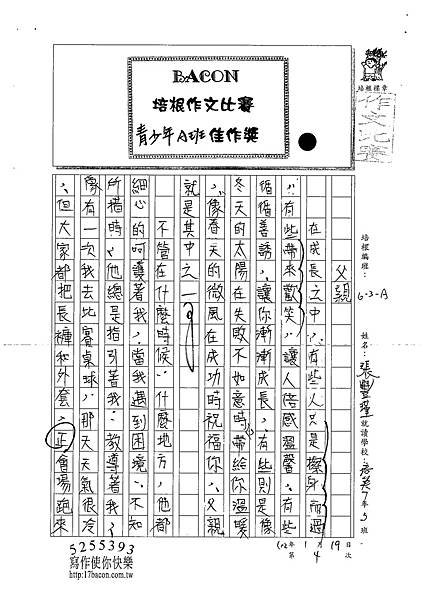 BACON
培根作文比賽
青少年A班佳作獎
培根標章
作文比賽
培根編班：6-3-A
姓名：張豐瑾
就讀學校：7年3班
102年1月19日
第4次
父親
在成長之中，有些人只是擦身而過
，有些帶來歡笑，讓人倍感溫馨。有些
循循善誘，讓你漸漸成長，有些則是像
冬天的太陽在失敗不如意時帶給你溫暖
，像春天的微風在成功時祝福你。父親
就是其中之一。
不管在什麼時候、什麼地方，他都
細心的呵護著我，當我遇到困境、不知
所措時，他總是指引著我、教導著我。
像有一次我去比賽桌球，那天天氣很冷
，但大家都把長褲和外套，正會場跑來
5255393
寫作使你快樂
http://17bacon.com.tw